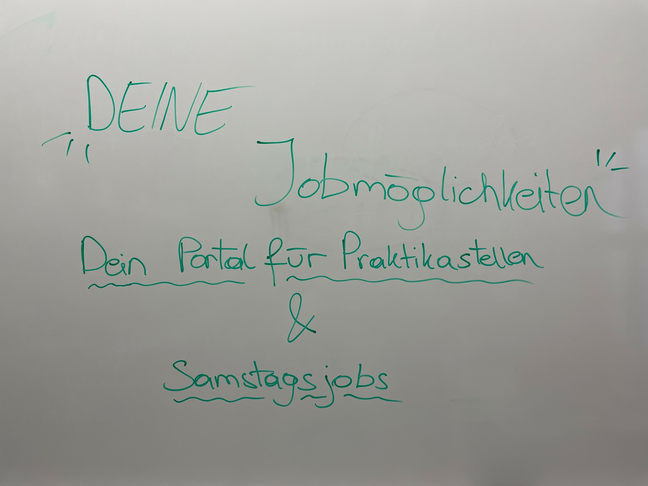 DEINE
Jobmöglichkeiten
Dein Portal für Praktikastellen
&
Samstagsjobs